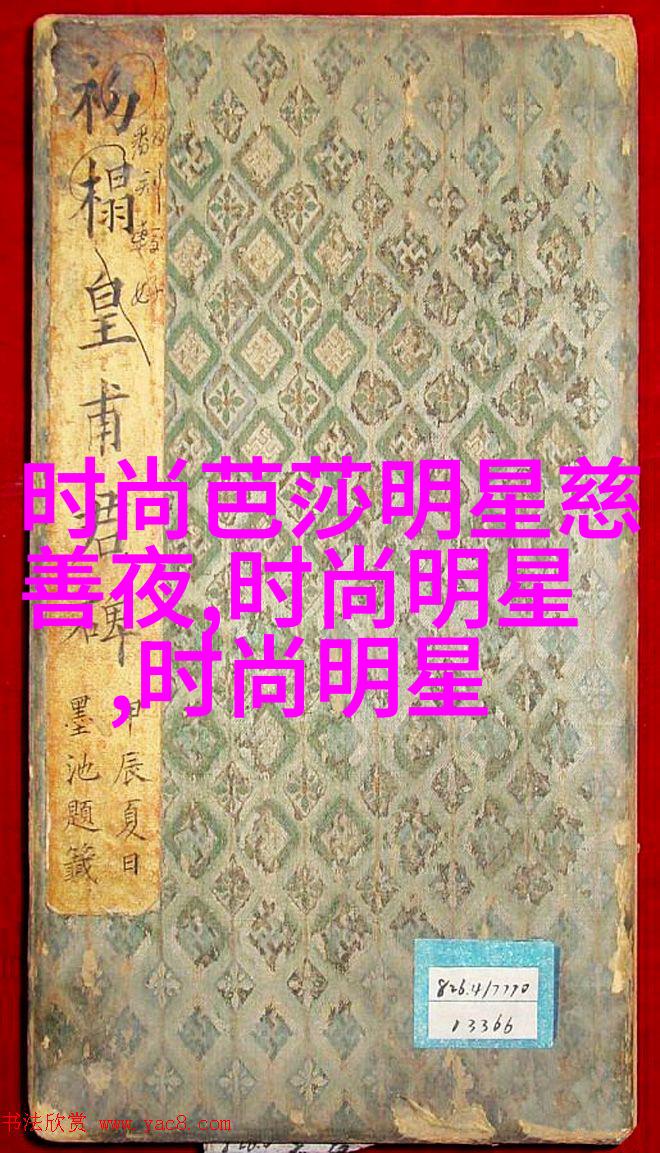 初榻皇甫君碑
甲辰夏日
墨池題籤
时尚芭莎明星慈
善夜,时尚明星
,时尚明星
826.4/7770
13366
书法欣赏 www.yac8.com